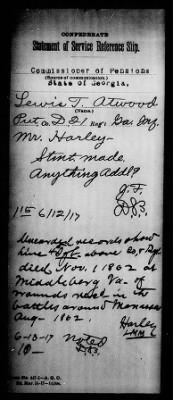 CONFEDERATE
Statement of Service Reference Slip.
Commissioner of Pensions
(Source of communication.)
State of Georgia.
Lewis T. Atwood
(Name.)
Pvt Co. D 21 Reg't Ga. Inf.
Mr. Harley—
Stmt. made,
Anything Add'l?
J.F.
6/12/17
Unearded records show
him 4" above
died Nov. 1 1862 at
Middleburg Va. of
wounds recd in the
battles around Manassas
Aug— 1862.
Harley
6-13-17 noted